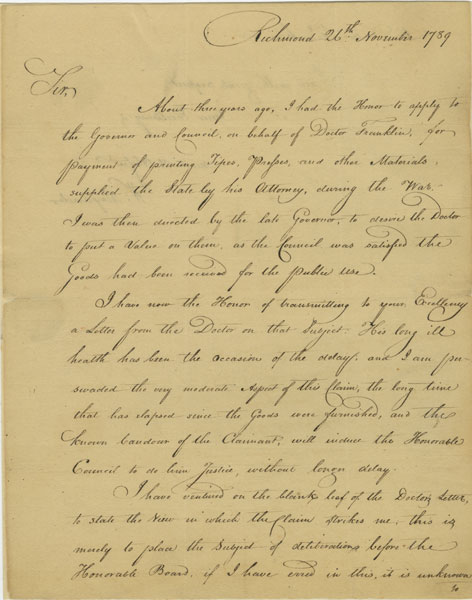 Richmond 26th November 1789
Sir,
About three years ago, I had the Honor to apply to
the Governor and Council, on behalf of Doctor Franklin, for
payment of printing Types, Presses, and other Materials,
supplied the State by his Attorney, during the War.
I was then directed by the late Governor, to desire the Doctor
to put a Value on them, as the Council was satisfied the
Goods had been received for the public use.
I have now the Honor of transmitting to your Excellency
a Letter from the Doctor on that Subject. His long ill
health has been the occasion of the delay, and I am per-
swaded the very moderate Aspect of this Claim, the long time
that has elapsed since the Goods were furnished, and the
known Candour of the Claimant, will induce the Honorable
Council to do him Justice, without longer delay.
I have ventured on the blank leaf of the Doctor's Letter,
to state the View in which the Claim strikes me, this is
merely to place the Subject of deliberations before the
Honorable Board, if I have erred in this, it is unknown
to